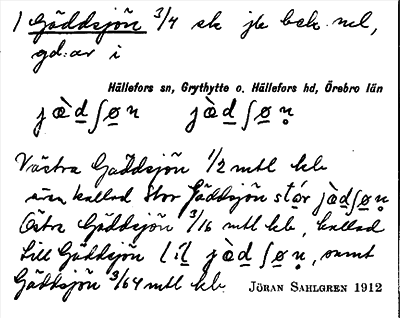 1 Gäddsjön 3/4 sk jb bek. ml,
gd:ar i
Hällefors sn, Grythytte o. Hällefors hd, Örebro län
jæ̀dʃøn jæ̀dʃøn̥
Västra Gäddsjön 1/2 mtl kb
även kallad Stor Gäddsjön stór jæ̀dʃøn̥
Östra Gäddsjön 3/16 mtl kb, kallad
Lill Gäddsjön líl jæ̀dʃøn̥, samt
Gäddsjön 3/64 mtl kb JÖRAN SAHLGREN 1912